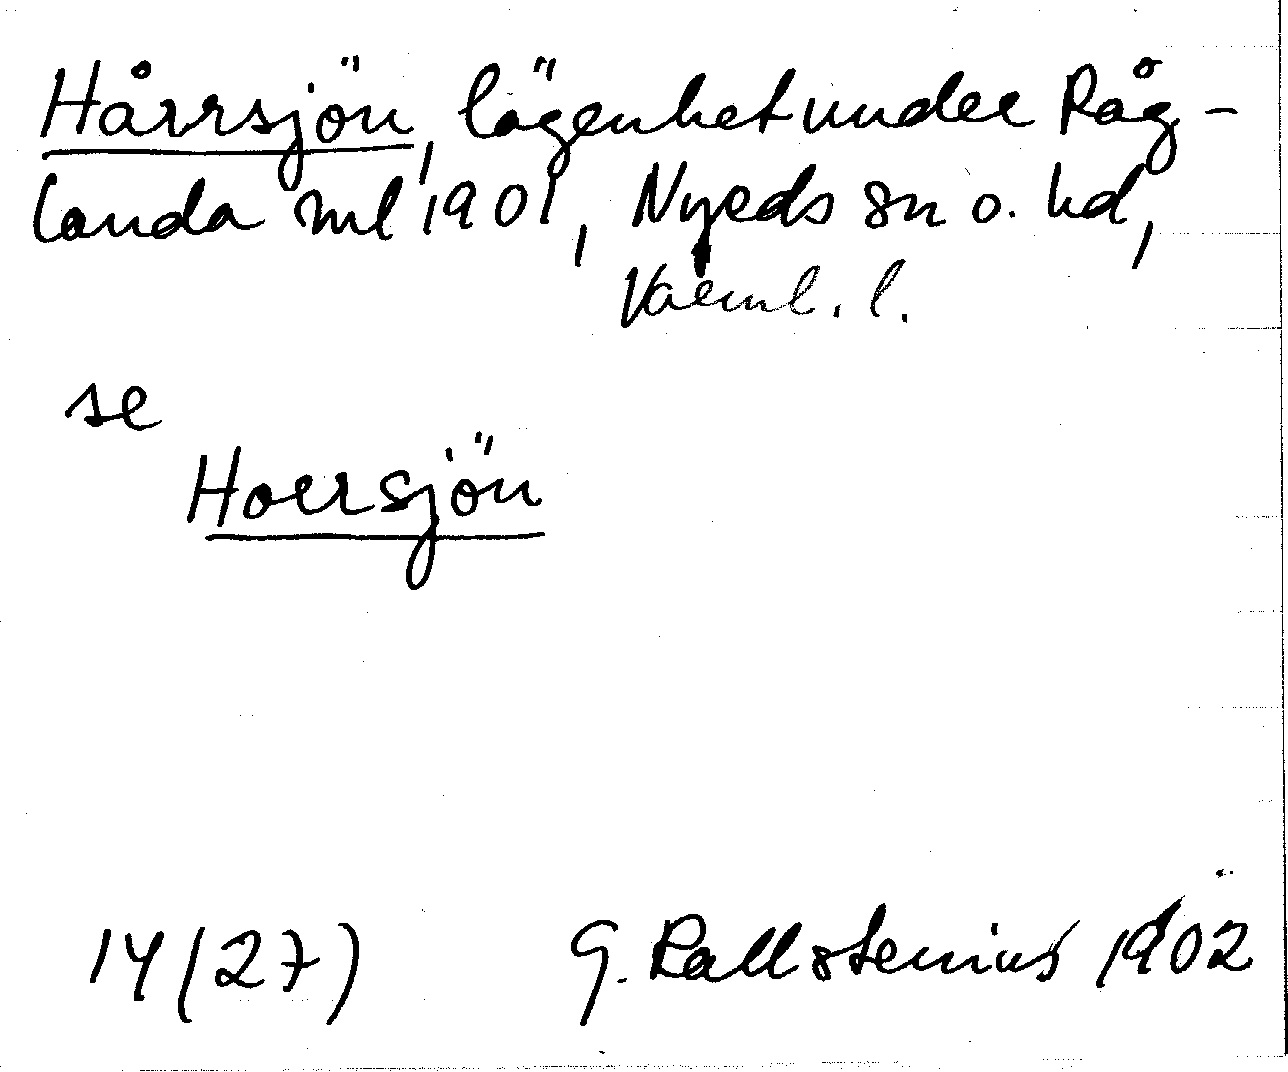 Hårrsjön, lägenhet under Råg-
landa ml 1901, Nyeds sn o. hd,
Värml. l.
se
Horrsjön
14 (27) G. Kallstenius 1902